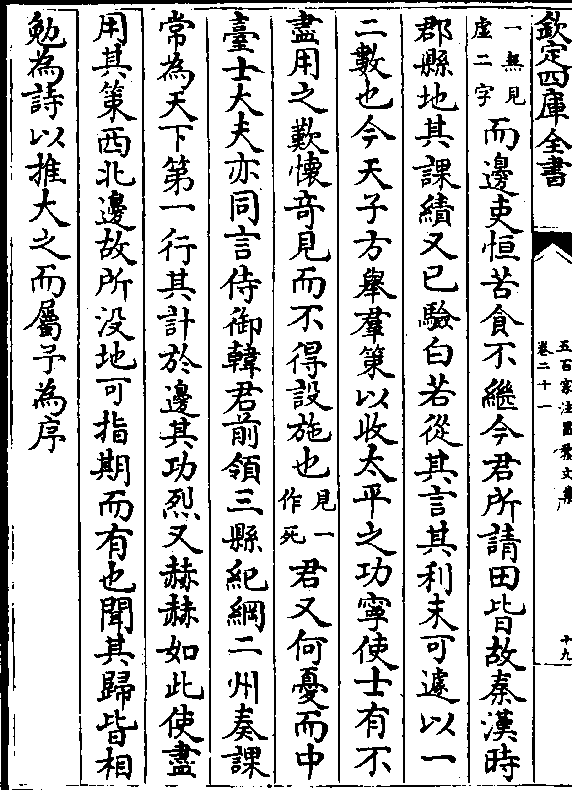 欽定四庫全書
五百家注昌黎文集
卷二十一
十九
一無見
虛二字
而邊吏恒苦食不繼今君所請田皆故秦漢時
郡縣地其課績又已驗白若從其言其利未可遽以一
二數也今天子方舉羣策以收太平之功寧使士有不
盡用之歎懷奇見而不得設施也
見一
作死
君又何憂而中
臺士大夫亦同言侍御韓君前領三縣紀綱二州奏課
常為天下第一行其計於邊其功烈又赫赫如此使盡
用其策西北邊故所没地可指期而有也聞其歸皆相
勉為詩以推大之而屬予為序